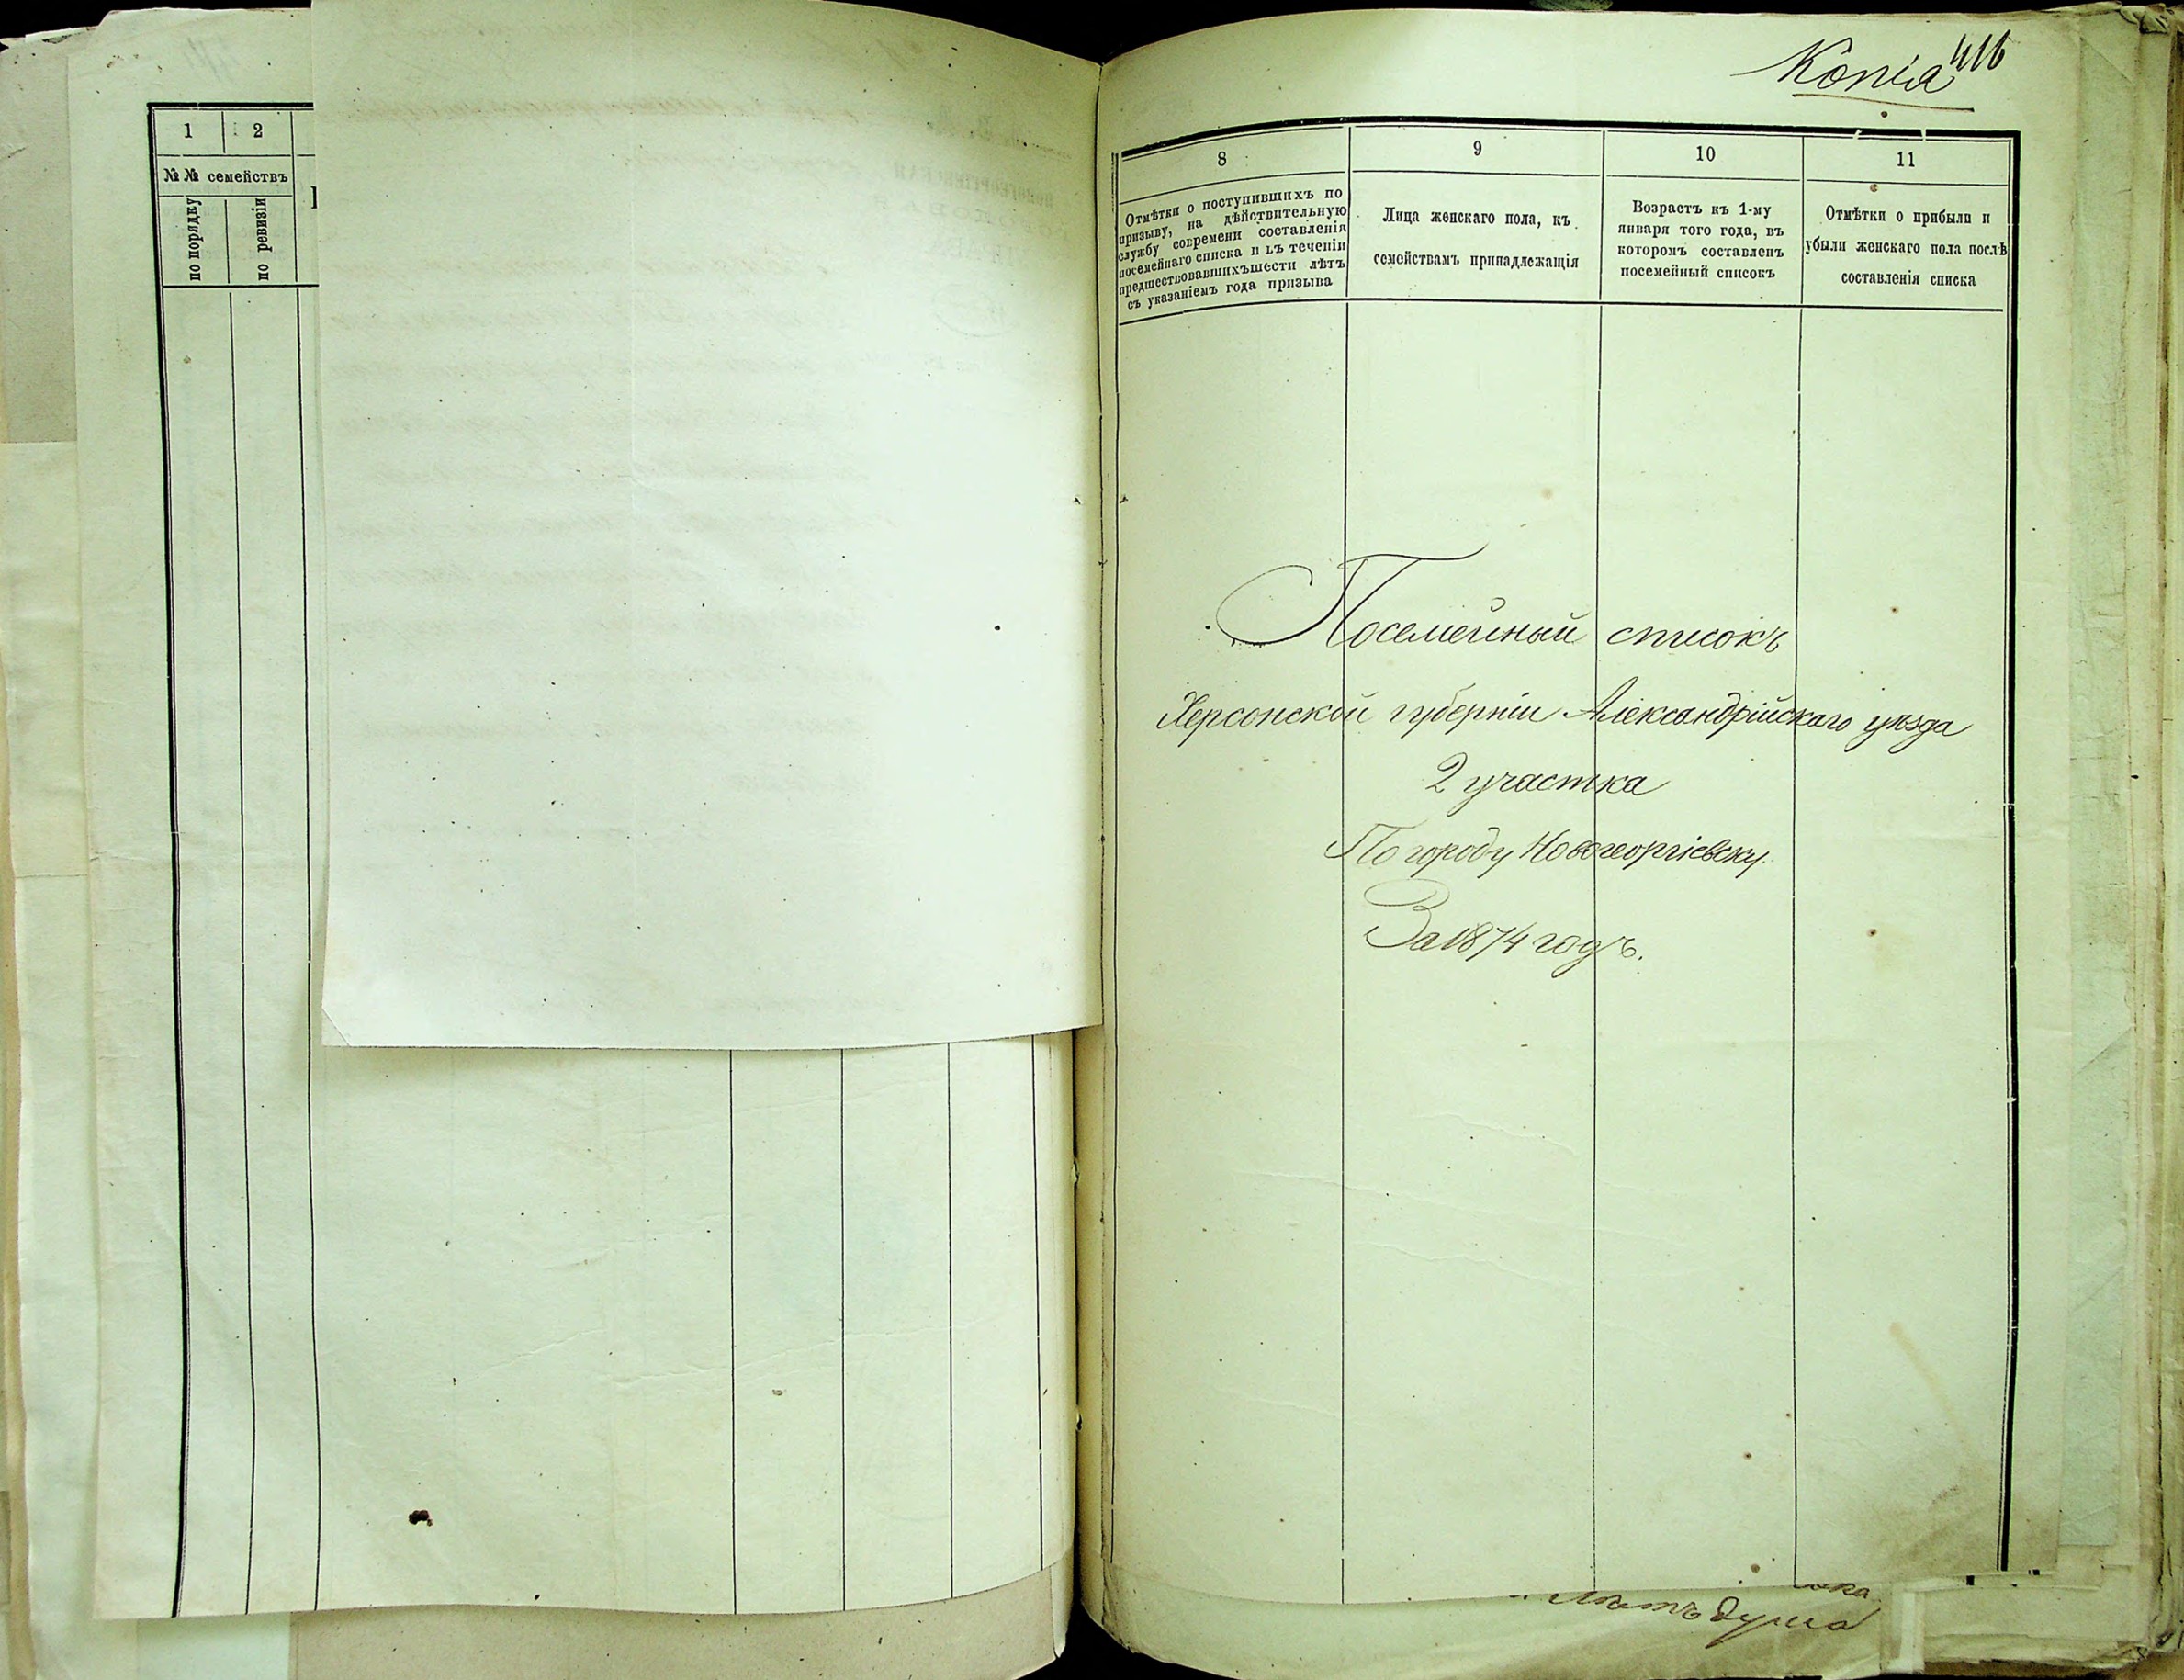 1
2
№№ семействъ
по порядку
по ревизіи
Копія
416
8
9
10
11
Отмѣтки о поступившихъ по
призыву, на дѣйствительную
службу современи составленія
посемейнаго списка и въ теченіи
предшествовавшихъ шести лѣтъ
съ указаніемъ года призыва
Лица женскаго пола, къ
семействамъ принадлежащія
Возрастъ къ 1-му
января того года, въ
которомъ составленъ
посемейный списокъ
Отмѣтки о прибыли и
убыли женскаго пола послѣ
составленія списка
Посемейный списокъ
Херсонской губерніи Александрійскаго уѣзда
2 участка
По городу Новогеоргіевску.
За 1874 годъ.
душа